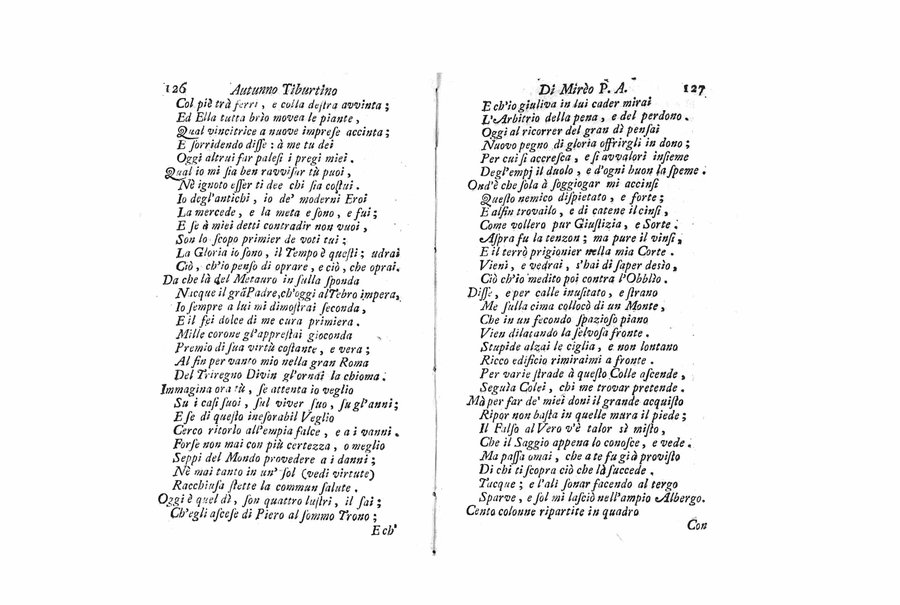 126 Autunno Tiburtino
Col piè trà ferri, e colla deſtra avvinta;
Ed Ella tutta brìo movea le piante,
Qual vincitrice a nuove impreſe accinta;
E ſorridendo diſſe: à me tu dei
Oggi altrui far paleſi i pregi miei.
Qual io mi ſia ben ravviſar tù puoi,
Nè ignoto eſſer ti dee chi ſia coſtui.
Io degl'antichi, io de' moderni Eroi
La mercede, e la meta e ſono, e fui;
E ſe a miei detti contradir non vuoi,
Son lo ſcopo primier de voti tui:
La Gloria io ſono, il Tempo è queſti; udrai
Ciò, ch'io penſo di oprare, e ciò, che oprai.
Da che là del Metauro in ſulla ſponda
Nacque il grã Padre, ch'oggi al Tebro impera,
Io ſempre a lui mi dimoſtrai ſeconda,
E il fei dolce di me cura primiera.
Mille corone gl'appreſtai gioconda
Premio di ſua virtù coſtante, e vera;
Al fin per vanto mio nella gran Roma
Del Triregno Divin gl'ornai la chioma.
Immagina ora tù, ſe attenta io veglio
Su i caſi ſuoi, ſul viver ſuo, ſu gl'anni;
E ſe di queſto ineſorabil Veglio
Cerco ritorlo all'empia falce, e a i vanni.
Forſe non mai con più certezza, o meglio
Seppi del Mondo provedere a i danni;
Nè mai tanto in un' ſol (vedi virtute)
Racchiuſa ſtette la commun ſalute.
Oggi è quel dì, ſon quattro luſtri, il ſai;
Ch'egli aſceſe di Piero al ſommo Trono;
E ch'
Di Mirèo P. A. 127
E ch'io giuliva in lui cader mirai
L'Arbitrio della pena, e del perdono.
Oggi al ricorrer del gran dì penſai
Nuovo pegno di gloria offrirgli in dono;
Per cui ſi accreſca, e ſi avvalori inſieme
Degl'empj il duolo, e d'ogni buon la ſpeme.
Ond'è che ſola à ſoggiogar mi accinſi
Queſto nemico diſpietato, e forte;
E alfin trovailo, e di catene il cinſi,
Come vollero pur Giuſtizia, e Sorte.
Aſpra fu la tenzon; ma pure il vinſi,
E il terrò prigionier nella mia Corte.
Vieni, e vedrai, s'hai di ſaper desìo,
Ciò ch'io medito poi contra l'Obblìo.
Diſſe, e per calle inuſitato, e ſtrano
Me ſulla cima collocò di un Monte,
Che in un fecondo ſpazioſo piano
Vien dilatando la ſelvoſa fronte.
Stupide alzai le ciglia, e non lontano
Ricco edificio rimiraimi a fronte.
Per varie ſtrade à queſto Colle aſcende,
Seguìa Colei, chi me trovar pretende.
Mà per far de' miei doni il grande acquiſto
Ripor non baſta in quelle mura il piede;
Il Falſo al Vero v'è talor sì miſto,
Che il Saggio appena lo conoſce, e vede.
Ma paſſa omai, che a te fu già proviſto
Di chi ti ſcopra ciò che là ſuccede.
Tacque; e l'ali ſonar facendo al tergo
Sparve, e ſol mi laſciò nell'ampio Albergo.
Cento colonne ripartite in quadro
Con